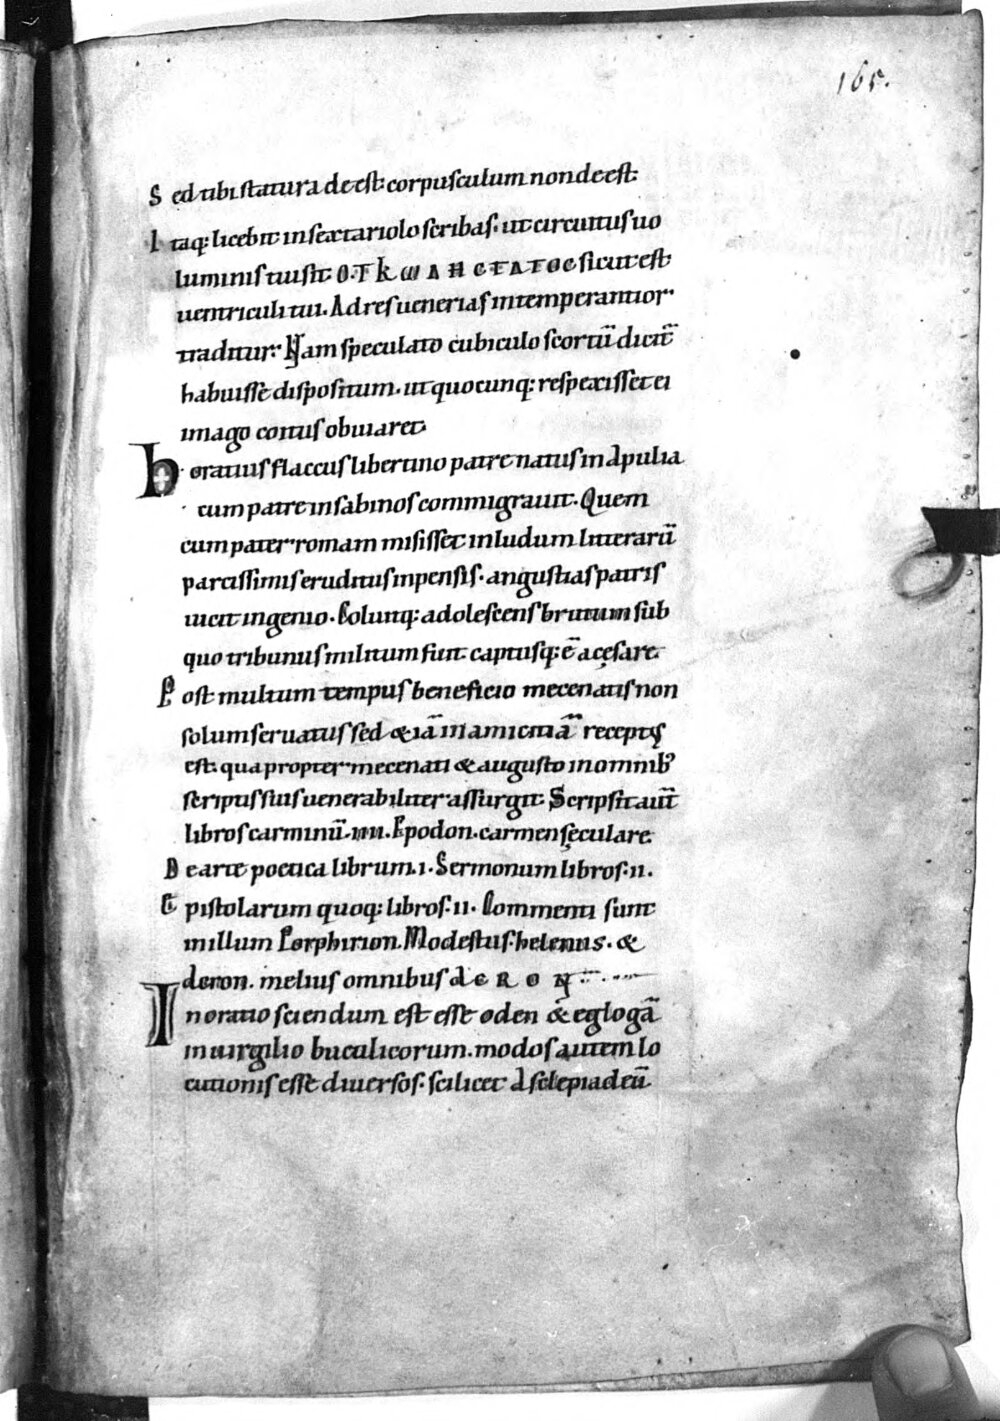 165.
Sed tibi statura deest. corpusculum non deest.
Itaq: licebit in sextariolo scribas. ut circuitus uo
luminis tui sit. Ο.ΓΚωΔΗCΤΑΤΟC sicut est
uentriculi tui. Ad res uenerias intemperantior
traditur. Nam speculato cubiculo scortū dicit̄
habuisse dispositum. ut quocunq: respexisset ei
imago coitus obuiaret.
Horatius flaccus libertino patre natus in Apulia
cum patre in sabinos commigrauit. Quem
cum pater romam misisset in ludum litterarū
parcissimis eruditus inpensis. angustias patris
uicit ingenio. Colunq: adolescens brutum sub
quo tribunus militum fuit captusq: ē a cęsare.
Post multum tempus beneficio mecenatis non
solum seruatus sed & iā in amicitiā receptus
est. qua propter mecenati & augusto in omnib;
scriptis suis uenerabiliter assurgit. Scripsit aut̄
libros carminū .iiii. Epodon. carmen sęculare.
De arte poetica librum .i. Sermonum libros .ii.
Epistolarum quoq: libros .ii. Commenti sunt
in illum Porphirion. Modestus. helenus. &
Acron. melius omnibus ACRON
In oratio sciendum est esse oden & eglogā
in uirgilio buculicorum. modos autem lo
cutionis esse diuersos. scilicet Asclepiadeū